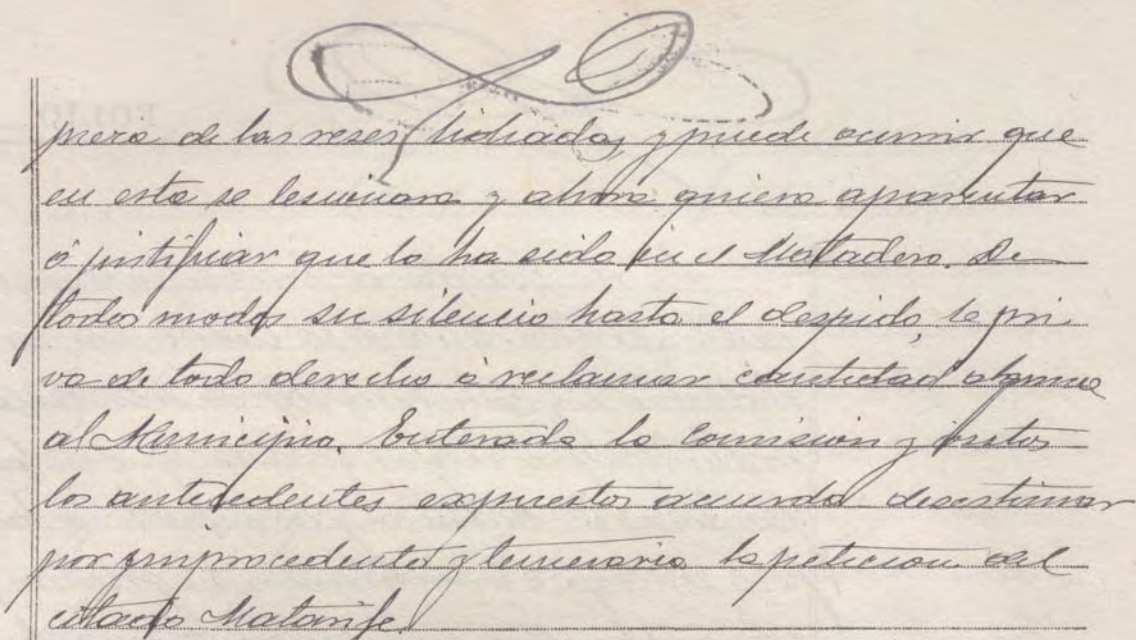 piera de las reses lidiadas, y puede ocurrir que
en esta se lesionara y ahora quiera aparentar
ó justificar que lo ha sido en el Matadero. De
todos modos su silencio hasta el despido, le pri
va de todo derecho á reclamar cantidad alguna
al Municipio. Enterada la Comision y vistos
los antecedentes expuestos acuerda desestimar
por improcedente y temeraria la peticion del
citado Matarife.